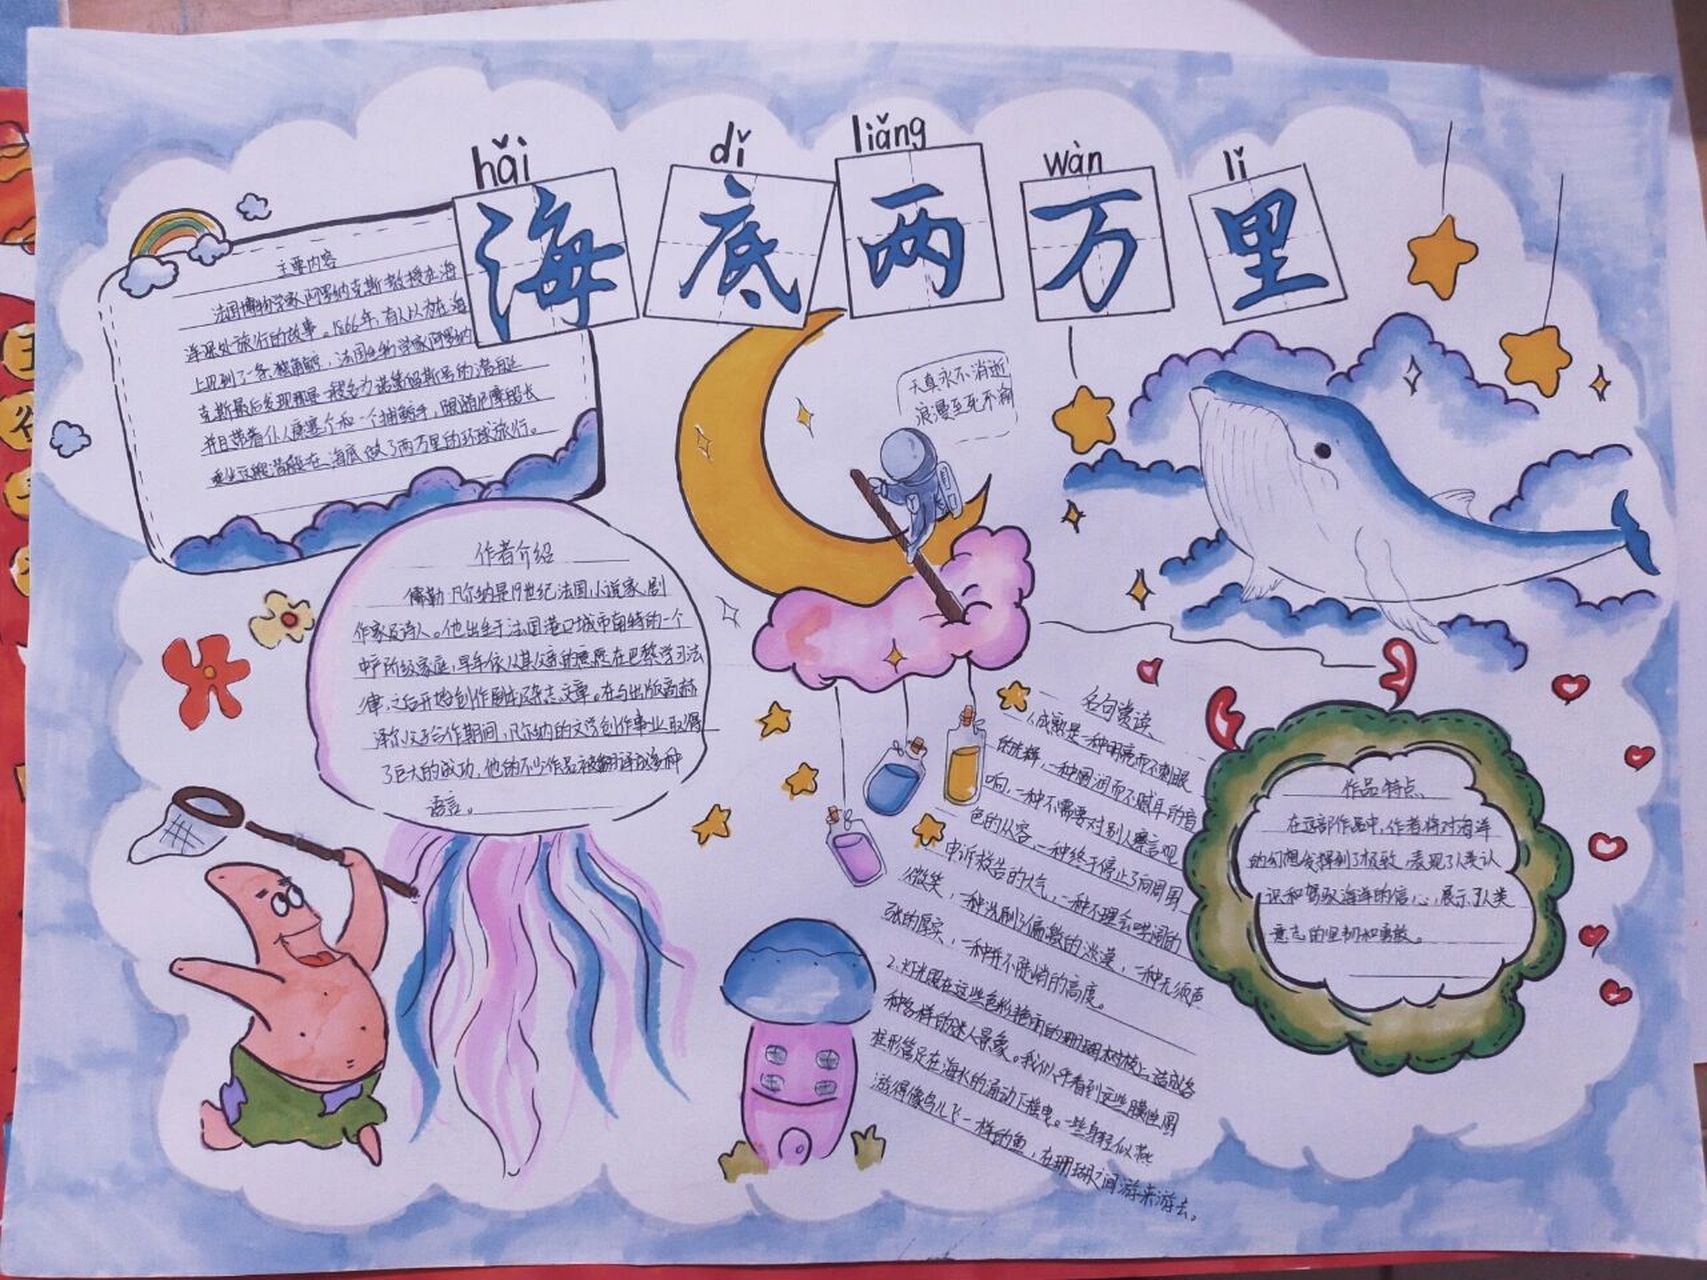 hǎi dǐ liǎng wàn lǐ
海底两万里
主要内容
法国博物学家阿罗纳克斯教授在海
洋深处旅行的故事。1866年,有人以为在海
上见到了一条独角鲸,法国生物学家阿罗纳
克斯最后发现那是一艘名为诺第留斯号的潜艇
并且带着仆人康塞尔和一个捕鲸手,跟随尼摩船长
乘坐这艘潜艇在海底做了两万里的环球旅行。
天真永不消逝
浪漫至死不渝
作者介绍
儒勒·凡尔纳是19世纪法国小说家、剧
作家及诗人。他出生于法国港口城市南特的一个
中产阶级家庭,早年依从其父亲的意愿在巴黎学习法
律,之后开始创作剧本及杂志文章。在与出版商赫
泽尔父子合作期间,凡尔纳的文学创作事业取得
了巨大的成功,他的不少作品被翻译成多种
语言。
名句赏读
1.成熟是一种明亮而不刺眼
的光辉,一种圆润而不腻耳的音
响,一种不需要对别人察言观
色的从容,一种终于停止了向周围
申诉求告的大气,一种不理会哄闹的
微笑,一种洗刷了偏激的淡漠,一种无须声
张的厚实,一种并不陡峭的高度。
2.灯光照在这些色彩艳丽的珊瑚树枝上,造成各
种各样的迷人景象。我似乎看到这些膜性圆
柱形管足在海水的涌动下摆曳。一些身轻似燕
游得像鸟儿飞一样的鱼,在珊瑚之间游来游去。
作品特点
在这部作品中,作者将对海洋
的幻想发挥到了极致,表现了人类认
识和驾驭海洋的信心,展示了人类
意志的坚韧和勇敢。